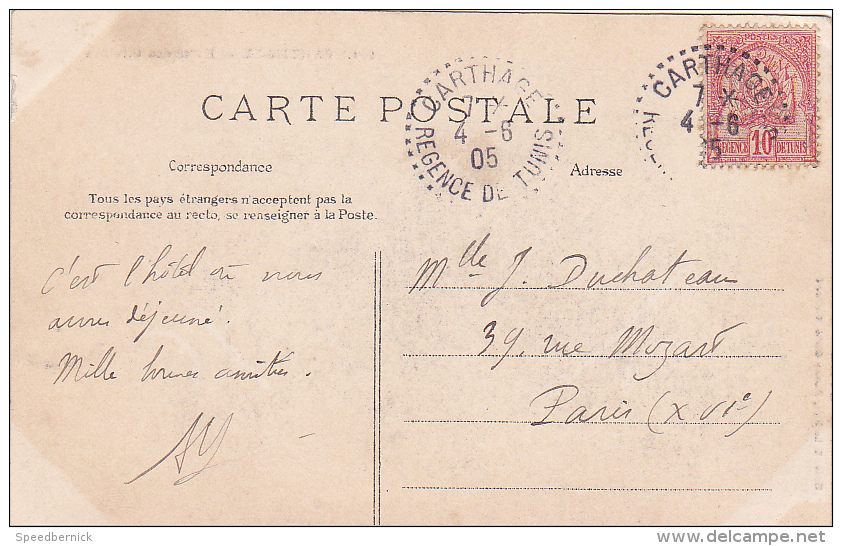 CARTE POSTALE
CARTHAGE
7 X
4 -6
05
REGENCE DE TUNIS
CARTHAGE
7 X
4 -6
5
POSTES
REGENCE 10 DE TUNIS
Correspondance
Adresse
Tous les pays étrangers n'acceptent pas la
correspondance au recto, se renseigner à la Poste.
C'est l'hôtel où nous
avons déjeuné.
Mille bonnes amitiés.
Mlle J. Duchateau
39, rue Mozart
Paris (XVIe)
Speedbernick
delcampe.net